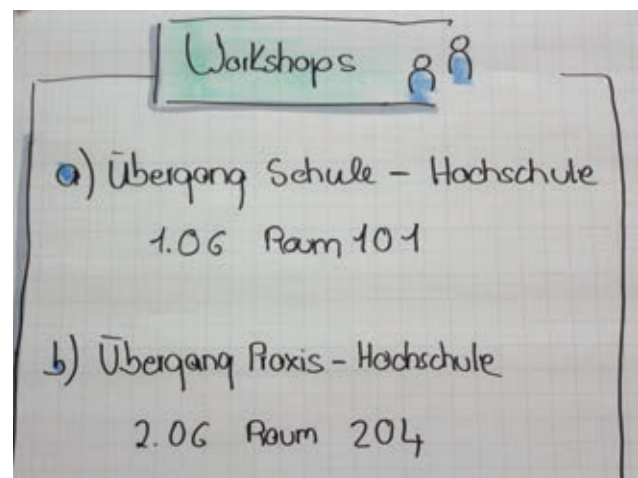 Workshops
a) Übergang Schule - Hochschule
1.06 Raum 101
b) Übergang Praxis - Hochschule
2.06 Raum 204